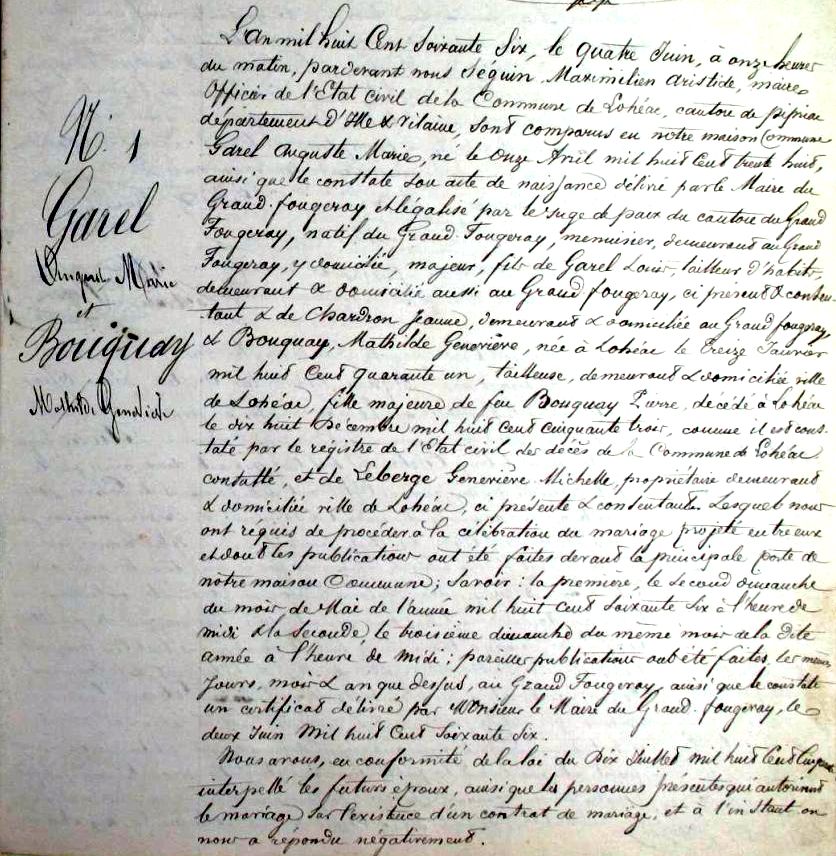 N. 1
Garel
Auguste Marie
et
Bouquay
Mathilde Geneviève
L'an mil huit Cent Soixante Six, le quatre Juin, à onze heures
du matin, pardevant nous Séguin, Maximilien Aristide, maire
Officier de l'Etat civil de la Commune de Lohéac, canton de pipriac
département d'Ille & Vilaine, sont comparus en notre maison Commune
Garel Auguste Marie, né le Onze Avril mil huit Cent trente huit,
ainsi que le constate son acte de naissance délivré par le Maire du
Grand-fougeray et légalisé par le Juge de paix du canton du Grand
Fougeray, natif du Grand-Fougeray, menuisier, demeurant au Grand
Fougeray, y domicilié, majeur, fils de Garel Louis, tailleur d'habits,
demeurant & domicilié aussi au Grand fougeray, ci présent & consen-
tant & de Chardron Jeanne, demeurant & domiciliée au Grand fougeray
& Bouquay, Mathilde Geneviève, née à Lohéac le Treize Janvier
mil huit Cent quarante un, tailleuse, demeurant & domiciliée ville
de Lohéac, fille majeure de feu Bouquay Pierre, décédé à Lohéac
le dix huit Décembre mil huit cent cinquante trois, comme il est cons-
taté par le régistre de l'Etat civil des décès de la Commune de Lohéac
constatté, et de Leberge Geneviève Michelle, propriétaire demeurant
& domiciliée ville de Lohéac, ci présente & consentante. Lesquels nous
ont réquis de procéder à la célébration du mariage projeté entre eux
et dont les publications ont été faites devant la principale porte de
notre maison Commune; Savoir: la première, le second dimanche
du mois de Mai de l'année mil huit Cent Soixante Six à l'heure de
midi & la seconde, le troisième dimanche du même mois de la dite
année à l'heure de midi; pareilles publications ont été faites, les mêmes
Jours, mois & an que dessus, au Grand Fougeray, ainsi que le constate
un certificat délivré par Monsieur le Maire du Grand-fougeray, le
deux Juin Mil huit Cent Soixante Six.
Nous avons, en conformité de la loi du Dix Juillet mil huit Cent Cinquante
interpellé les futurs époux, ainsi que les personnes présentes qui autorisent
le mariage sur l'existence d'un contrat de mariage, et à l'instant on
nous a répondu négativement.